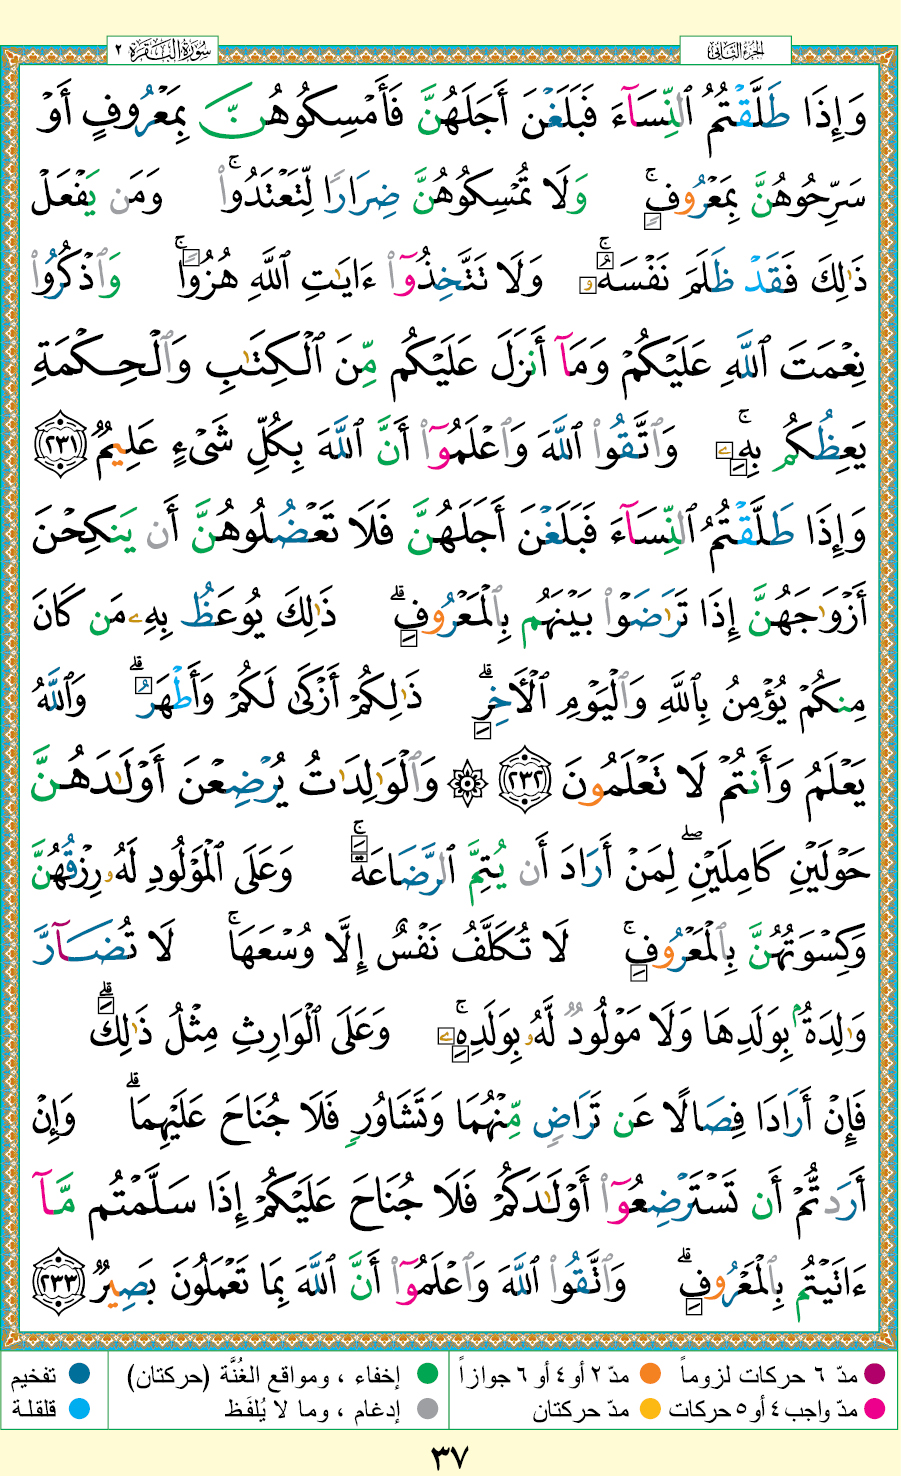 الجزء الثاني
سورة البقرة ٢
وَإِذَا طَلَّقْتُمُ ٱلنِّسَآءَ فَبَلَغْنَ أَجَلَهُنَّ فَأَمْسِكُوهُنَّ بِمَعْرُوفٍ أَوْ
سَرِّحُوهُنَّ بِمَعْرُوفٍۚ وَلَا تُمْسِكُوهُنَّ ضِرَارًا لِّتَعْتَدُوا۟ۚ وَمَن يَفْعَلْ
ذَٰلِكَ فَقَدْ ظَلَمَ نَفْسَهُۥۚ وَلَا تَتَّخِذُوٓا۟ ءَايَٰتِ ٱللَّهِ هُزُوًاۚ وَٱذْكُرُوا۟
نِعْمَتَ ٱللَّهِ عَلَيْكُمْ وَمَآ أَنزَلَ عَلَيْكُم مِّنَ ٱلْكِتَٰبِ وَٱلْحِكْمَةِ
يَعِظُكُم بِهِۦۚ وَٱتَّقُوا۟ ٱللَّهَ وَٱعْلَمُوٓا۟ أَنَّ ٱللَّهَ بِكُلِّ شَىْءٍ عَلِيمٌ ٢٣١
وَإِذَا طَلَّقْتُمُ ٱلنِّسَآءَ فَبَلَغْنَ أَجَلَهُنَّ فَلَا تَعْضُلُوهُنَّ أَن يَنكِحْنَ
أَزْوَٰجَهُنَّ إِذَا تَرَٰضَوْا۟ بَيْنَهُم بِٱلْمَعْرُوفِۗ ذَٰلِكَ يُوعَظُ بِهِۦ مَن كَانَ
مِنكُمْ يُؤْمِنُ بِٱللَّهِ وَٱلْيَوْمِ ٱلْءَاخِرِۗ ذَٰلِكُمْ أَزْكَىٰ لَكُمْ وَأَطْهَرُۗ وَٱللَّهُ
يَعْلَمُ وَأَنتُمْ لَا تَعْلَمُونَ ٢٣٢ ۞ وَٱلْوَٰلِدَٰتُ يُرْضِعْنَ أَوْلَٰدَهُنَّ
حَوْلَيْنِ كَامِلَيْنِۖ لِمَنْ أَرَادَ أَن يُتِمَّ ٱلرَّضَاعَةَۚ وَعَلَى ٱلْمَوْلُودِ لَهُۥ رِزْقُهُنَّ
وَكِسْوَتُهُنَّ بِٱلْمَعْرُوفِۚ لَا تُكَلَّفُ نَفْسٌ إِلَّا وُسْعَهَاۚ لَا تُضَآرَّ
وَٰلِدَةٌۢ بِوَلَدِهَا وَلَا مَوْلُودٌ لَّهُۥ بِوَلَدِهِۦۚ وَعَلَى ٱلْوَارِثِ مِثْلُ ذَٰلِكَۗ
فَإِنْ أَرَادَا فِصَالًا عَن تَرَاضٍ مِّنْهُمَا وَتَشَاوُرٍ فَلَا جُنَاحَ عَلَيْهِمَاۗ وَإِنْ
أَرَدتُّمْ أَن تَسْتَرْضِعُوٓا۟ أَوْلَٰدَكُمْ فَلَا جُنَاحَ عَلَيْكُمْ إِذَا سَلَّمْتُم مَّآ
ءَاتَيْتُم بِٱلْمَعْرُوفِۗ وَٱتَّقُوا۟ ٱللَّهَ وَٱعْلَمُوٓا۟ أَنَّ ٱللَّهَ بِمَا تَعْمَلُونَ بَصِيرٌ ٢٣٣
مدّ ٦ حركات لزوماً
مدّ ٢ أو ٤ أو ٦ جوازاً
إخفاء ، ومواقع الغُنَّة (حركتان)
تفخيم
مدّ واجب ٤ أو ٥ حركات
مدّ حركتان
إدغام ، وما لا يُلفَظ
قلقلة
٣٧